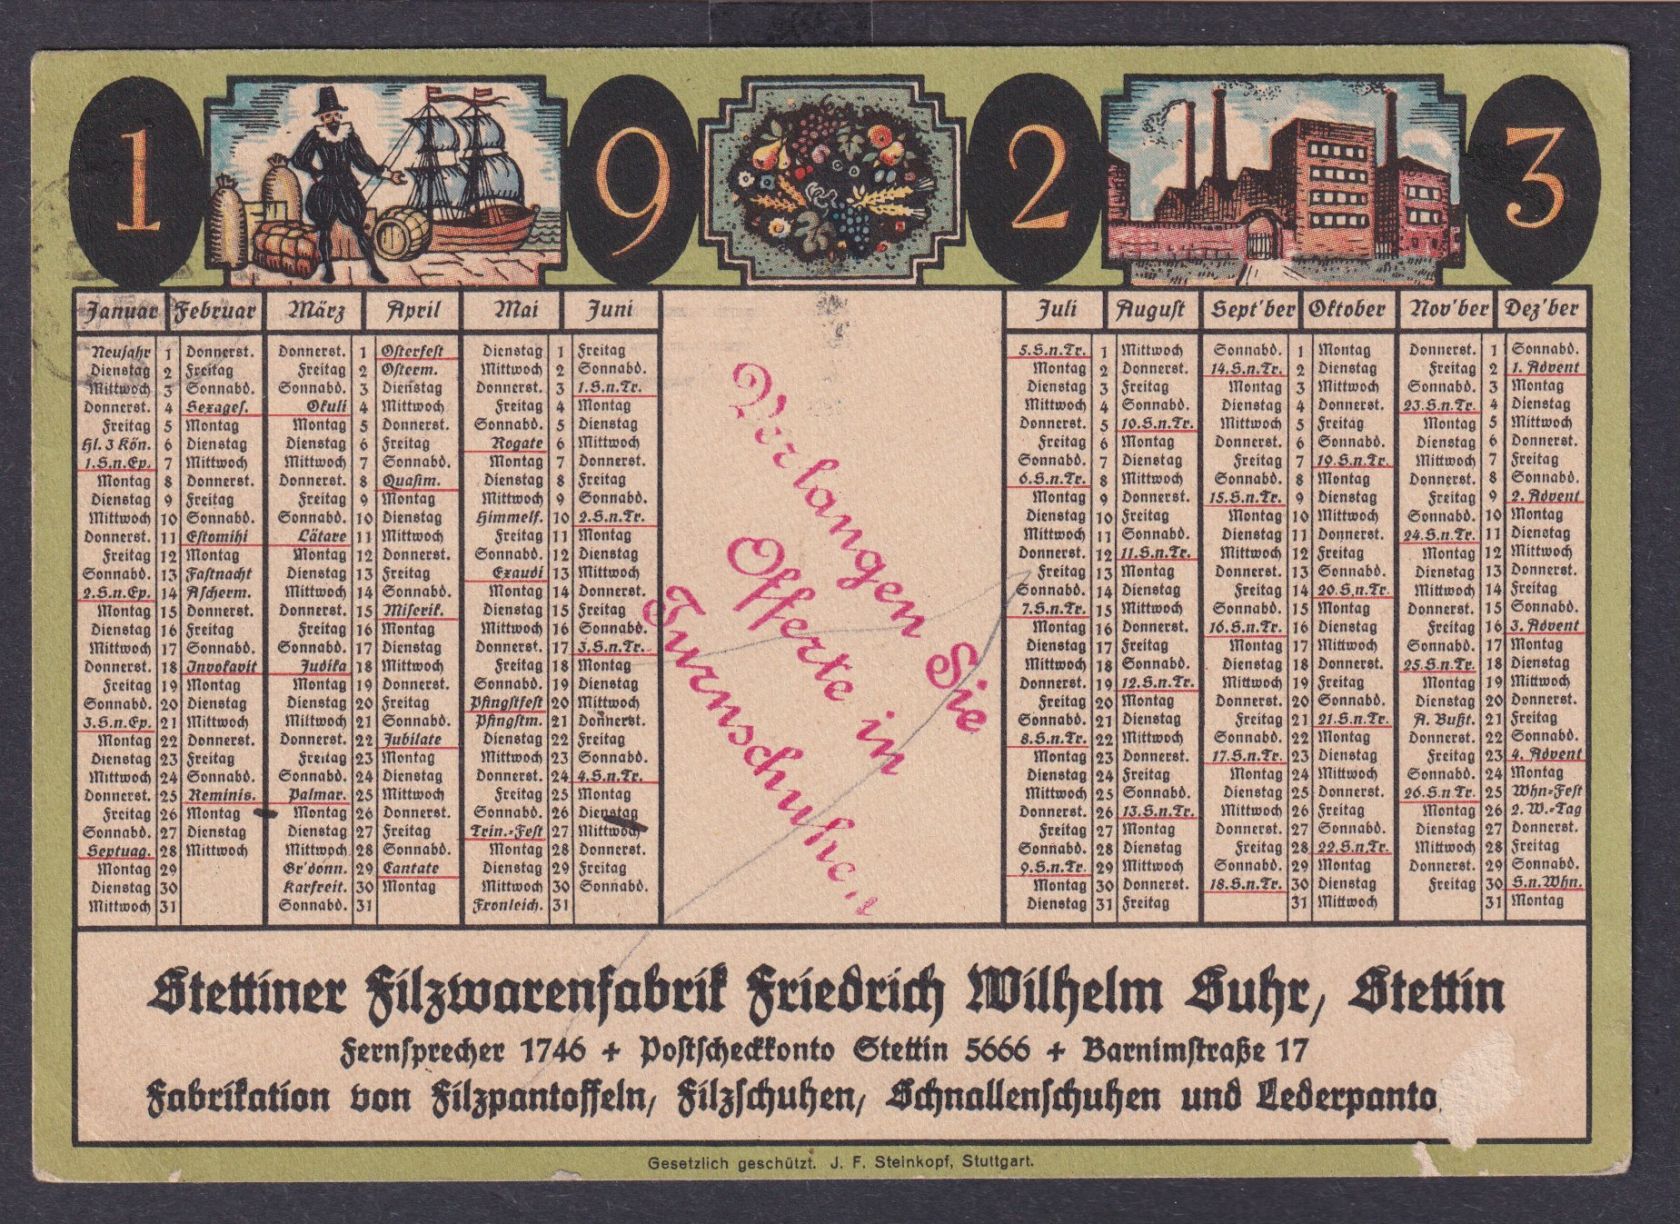 1 9 2 3
Januar Februar März April Mai Juni Juli August Sept'ber Oktober Nov'ber Dez'ber
Neujahr 1 Donnerst. Donnerst. 1 Osterfest Dienstag 1 Freitag 5.S.n.Tr. 1 Mittwoch Sonnabd. 1 Montag Donnerst. 1 Sonnabd.
Dienstag 2 Freitag Freitag 2 Osterm. Mittwoch 2 Sonnabd. Montag 2 Donnerst. 14.S.n.Tr. 2 Dienstag Freitag 2 1. Advent
Mittwoch 3 Sonnabd. Sonnabd. 3 Dienstag Donnerst. 3 1.S.n.Tr. Dienstag 3 Freitag Montag 3 Mittwoch Sonnabd. 3 Montag
Donnerst. 4 Sexages. Okuli 4 Mittwoch Freitag 4 Montag Mittwoch 4 Sonnabd. Dienstag 4 Donnerst. 23.S.n.Tr. 4 Dienstag
Freitag 5 Montag Montag 5 Donnerst. Sonnabd. 5 Dienstag Donnerst. 5 10.S.n.Tr. Mittwoch 5 Freitag Montag 5 Mittwoch
Hl. 3 Kön. 6 Dienstag Dienstag 6 Freitag Rogate 6 Mittwoch Freitag 6 Montag Donnerst. 6 Sonnabd. Dienstag 6 Donnerst.
1.S.n.Ep. 7 Mittwoch Mittwoch 7 Sonnabd. Montag 7 Donnerst. Sonnabd. 7 Dienstag Freitag 7 19.S.n.Tr. Mittwoch 7 Freitag
Montag 8 Donnerst. Donnerst. 8 Quasim. Dienstag 8 Freitag 6.S.n.Tr. 8 Mittwoch Sonnabd. 8 Montag Donnerst. 8 Sonnabd.
Dienstag 9 Freitag Freitag 9 Montag Mittwoch 9 Sonnabd. Montag 9 Donnerst. 15.S.n.Tr. 9 Dienstag Freitag 9 2. Advent
Mittwoch 10 Sonnabd. Sonnabd. 10 Dienstag Himmelf. 10 2.S.n.Tr. Dienstag 10 Freitag Montag 10 Mittwoch Sonnabd. 10 Montag
Donnerst. 11 Estomihi Lätare 11 Mittwoch Freitag 11 Montag Mittwoch 11 Sonnabd. Dienstag 11 Donnerst. 24.S.n.Tr. 11 Dienstag
Freitag 12 Montag Montag 12 Donnerst. Sonnabd. 12 Dienstag Donnerst. 12 11.S.n.Tr. Mittwoch 12 Freitag Montag 12 Mittwoch
Sonnabd. 13 Fastnacht Dienstag 13 Freitag Exaudi 13 Mittwoch Freitag 13 Montag Donnerst. 13 Sonnabd. Dienstag 13 Donnerst.
2.S.n.Ep. 14 Ascherm. Mittwoch 14 Sonnabd. Montag 14 Donnerst. Sonnabd. 14 Dienstag Freitag 14 20.S.n.Tr. Mittwoch 14 Freitag
Montag 15 Donnerst. Donnerst. 15 Miserik. Dienstag 15 Freitag 7.S.n.Tr. 15 Mittwoch Sonnabd. 15 Montag Donnerst. 15 Sonnabd.
Dienstag 16 Freitag Freitag 16 Montag Mittwoch 16 Sonnabd. Montag 16 Donnerst. 16.S.n.Tr. 16 Dienstag Freitag 16 3. Advent
Mittwoch 17 Sonnabd. Sonnabd. 17 Dienstag Donnerst. 17 3.S.n.Tr. Dienstag 17 Freitag Montag 17 Mittwoch Sonnabd. 17 Montag
Donnerst. 18 Invokavit Judika 18 Mittwoch Freitag 18 Montag Mittwoch 18 Sonnabd. Dienstag 18 Donnerst. 25.S.n.Tr. 18 Dienstag
Freitag 19 Montag Montag 19 Donnerst. Sonnabd. 19 Dienstag Donnerst. 19 12.S.n.Tr. Mittwoch 19 Freitag Montag 19 Mittwoch
Sonnabd. 20 Dienstag Dienstag 20 Freitag Pfingstfest 20 Mittwoch Freitag 20 Montag Donnerst. 20 Sonnabd. Dienstag 20 Donnerst.
3.S.n.Ep. 21 Mittwoch Mittwoch 21 Sonnabd. Pfingstm. 21 Donnerst. Sonnabd. 21 Dienstag Freitag 21 21.S.n.Tr. A. Bußt. 21 Freitag
Montag 22 Donnerst. Donnerst. 22 Jubilate Dienstag 22 Freitag 8.S.n.Tr. 22 Mittwoch Sonnabd. 22 Montag Donnerst. 22 Sonnabd.
Dienstag 23 Freitag Freitag 23 Montag Mittwoch 23 Sonnabd. Montag 23 Donnerst. 17.S.n.Tr. 23 Dienstag Freitag 23 4. Advent
Mittwoch 24 Sonnabd. Sonnabd. 24 Dienstag Donnerst. 24 4.S.n.Tr. Dienstag 24 Freitag Montag 24 Mittwoch Sonnabd. 24 Montag
Donnerst. 25 Reminis. Palmar. 25 Mittwoch Freitag 25 Montag Mittwoch 25 Sonnabd. Dienstag 25 Donnerst. 26.S.n.Tr. 25 Whn-Fest
Freitag 26 Montag Montag 26 Donnerst. Sonnabd. 26 Dienstag Donnerst. 26 13.S.n.Tr. Mittwoch 26 Freitag Montag 26 2. W.-Tag
Sonnabd. 27 Dienstag Dienstag 27 Freitag Trin.-Fest 27 Mittwoch Freitag 27 Montag Donnerst. 27 Sonnabd. Dienstag 27 Donnerst.
Septuag. 28 Mittwoch Mittwoch 28 Sonnabd. Montag 28 Donnerst. Sonnabd. 28 Dienstag Freitag 28 22.S.n.Tr. Mittwoch 28 Freitag
Montag 29 Gr'donn. 29 Cantate Dienstag 29 Freitag 9.S.n.Tr. 29 Mittwoch Sonnabd. 29 Montag Donnerst. 29 Sonnabd.
Dienstag 30 Karfreit. 30 Montag Mittwoch 30 Sonnabd. Montag 30 Donnerst. 18.S.n.Tr. 30 Dienstag Freitag 30 S.n.Whn.
Mittwoch 31 Sonnabd. 31 Fronleich. 31 Dienstag 31 Freitag 31 Mittwoch 31 Montag
Verlangen Sie
Offerte in
Turnschuhen
Stettiner Filzwarenfabrik Friedrich Wilhelm Suhr, Stettin
Fernsprecher 1746 + Postscheckkonto Stettin 5666 + Barnimstraße 17
Fabrikation von Filzpantoffeln, Filzschuhen, Schnallenschuhen und Lederpanto
Gesetzlich geschützt. J. F. Steinkopf, Stuttgart.